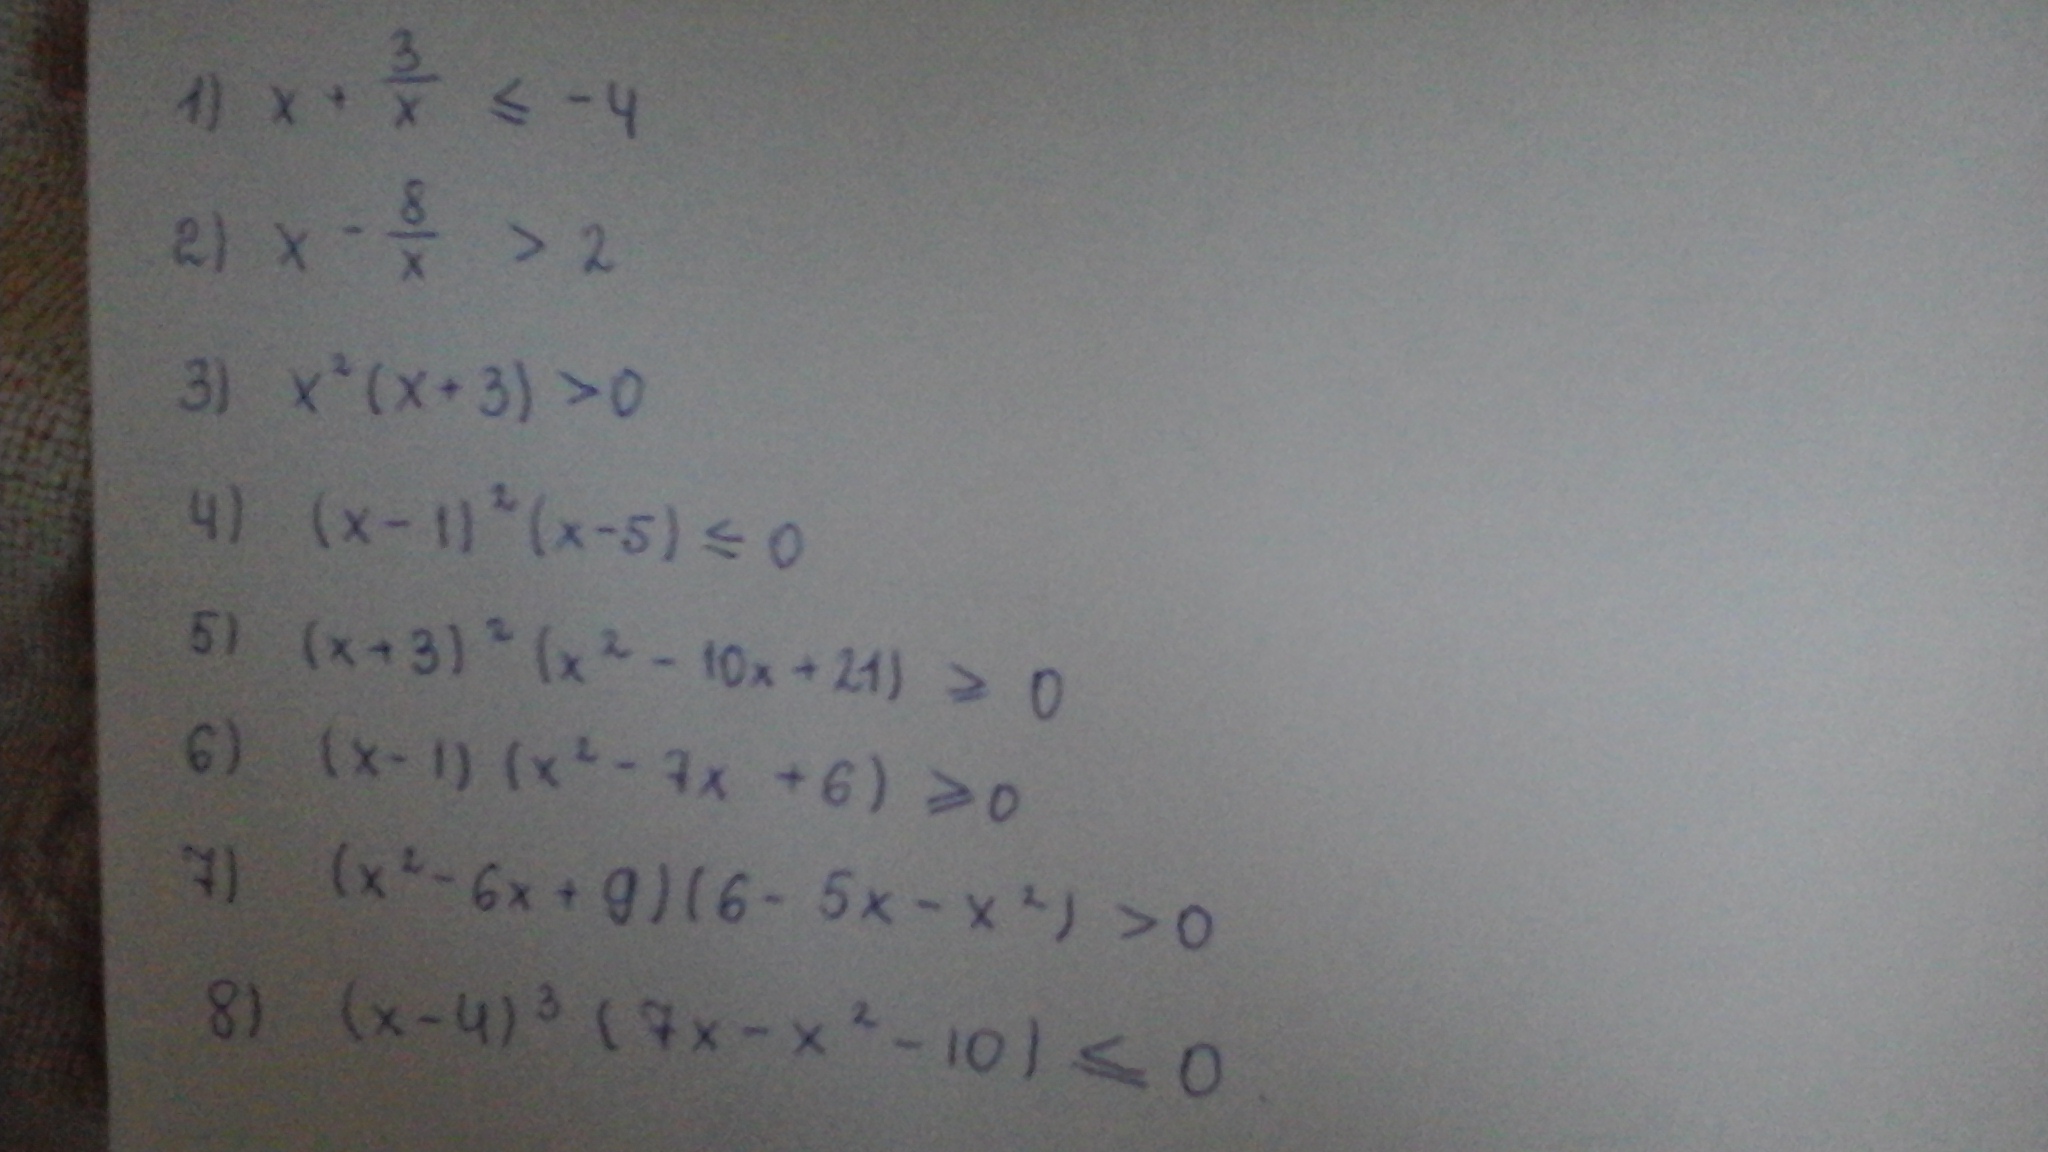 1) x + 3/x ≤ -4
2) x - 8/x > 2
3) x²(x+3) > 0
4) (x-1)²(x-5) ≤ 0
5) (x+3)²(x²-10x+21) ≥ 0
6) (x-1)(x²-7x+6) ≥ 0
7) (x²-6x+9)(6-5x-x²) > 0
8) (x-4)³(7x-x²-10) ≤ 0